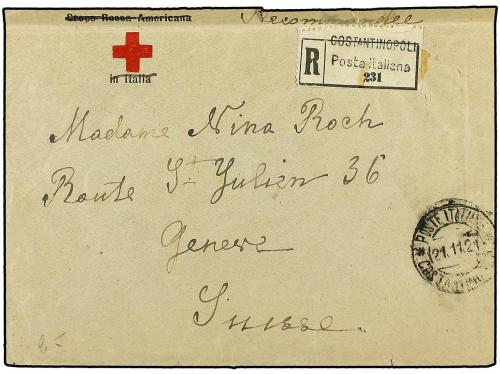 Croce Rossa Americana
in Italia
Recommandée
R
COSTANTINOPOLI
Posta italiana
231
Madame Nina Roch
Route St Julien 36
Geneve
Suisse
* POSTE ITALIANE *
21.11.21
COSTANTINOPOLI
2-